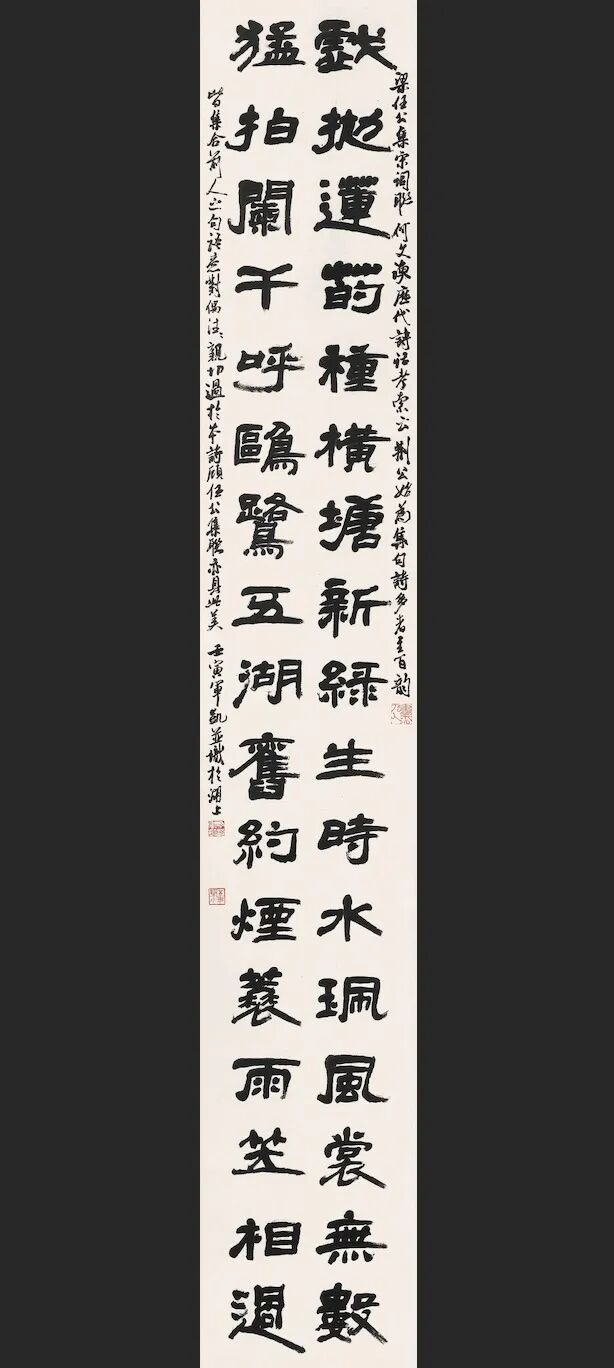 梁任公集宋詞聯 何文煥歷代詩話考索云 荊公始為集句詩多者至百韻
戲拋蓮菂種橫塘新綠生時水珮風裳無數
猛拍闌干呼鷗鷺五湖舊約煙蓑雨笠相過
皆集合前人之句語意對偶往往親切過於本詩顧任公集聯亦具此美 壬寅軍凱並識於湖上